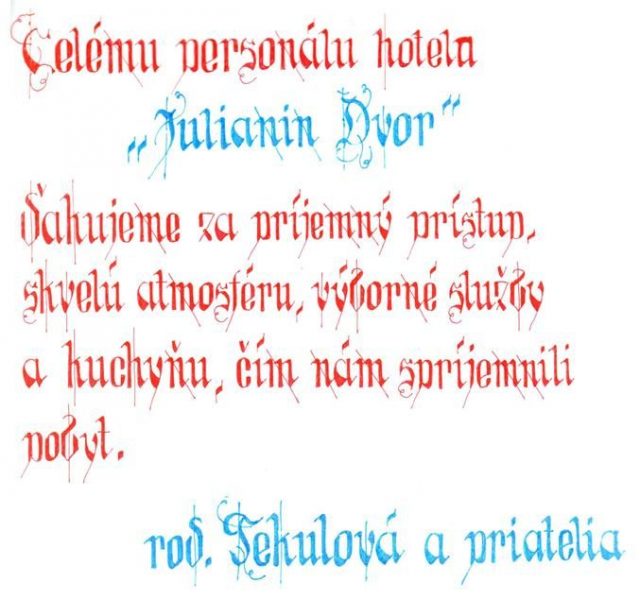 Celému personálu hotela
„Julianin Dvor“
Ďakujeme za príjemný prístup,
skvelú atmosféru, výborné služby
a kuchyňu, čím nám spríjemnili
pobyt.
rod. Tekulová a priatelia